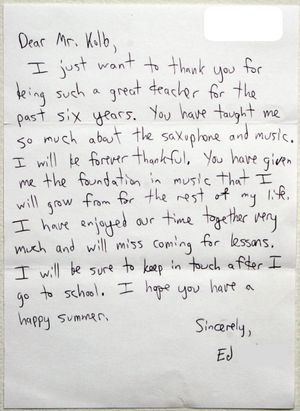 Dear Mr. Kolb,
I just want to thank you for
being such a great teacher for the
past six years. You have taught me
so much about the saxophone and music.
I will be forever thankful. You have given
me the foundation in music that I
will grow from for the rest of my life.
I have enjoyed our time together very
much and will miss coming for lessons.
I will be sure to keep in touch after I
go to school. I hope you have a
happy summer.
Sincerely,
Ed